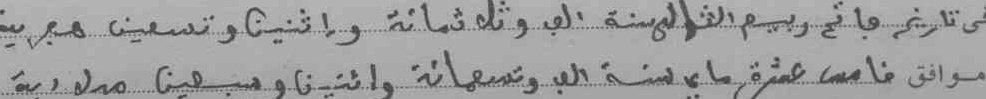 في تاريخ فاتح ربيع الثاني سنة الف وثلاثمائة وإثنين وتسعين هجرية
موافق خامس عشرة ماي سنة الف وتسعمائة وإثنين وسبعين ميلادية